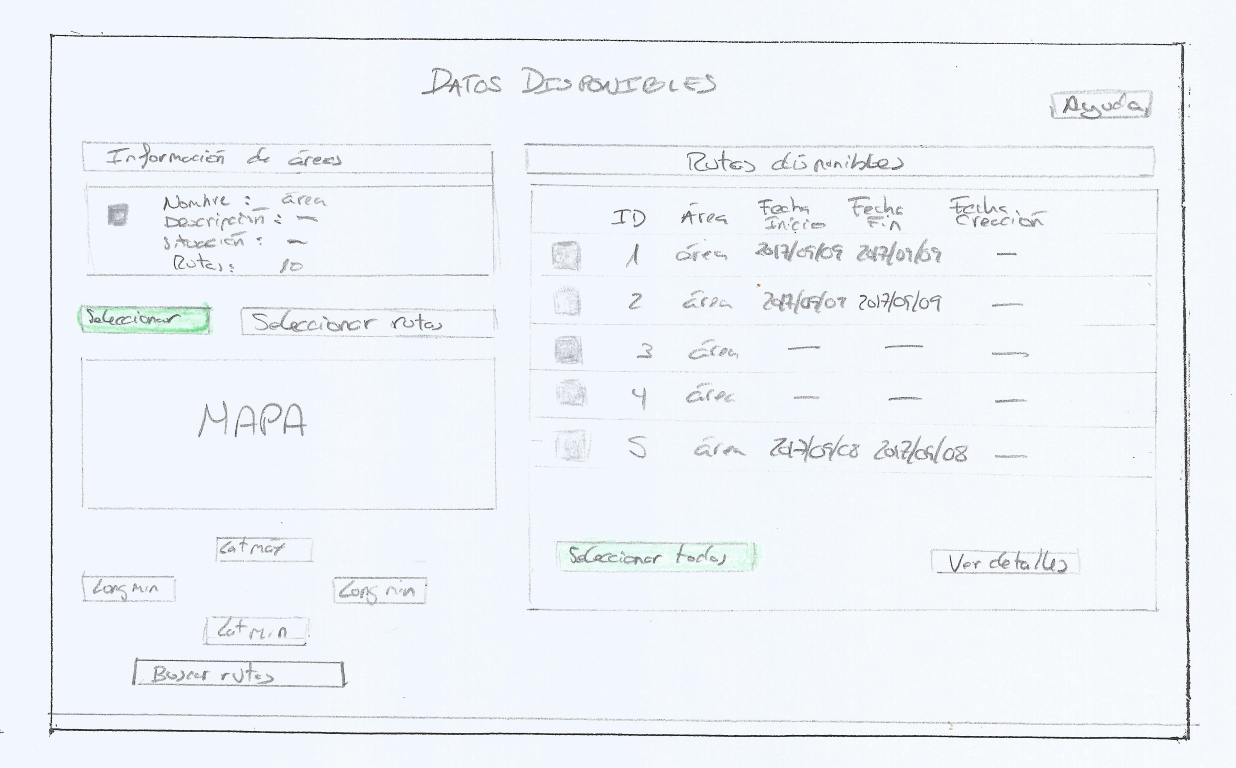 DATOS DISPONIBLES
Ayuda
Información de áreas
Nombre : área
Descripción : —
Situación : —
Rutas: 10
Seleccionar
Seleccionar rutas
MAPA
Lat max
Long Min
Long min
Lat Min
Buscar rutas
Rutas disponibles
ID Área Fecha Inicio Fecha Fin Fecha Creación
1 área 2017/09/09 2017/09/09 —
2 área 2017/09/09 2017/09/09 —
3 área — — —
4 área — — —
5 área 2017/09/08 2017/09/08 —
Seleccionar todas
Ver detalles